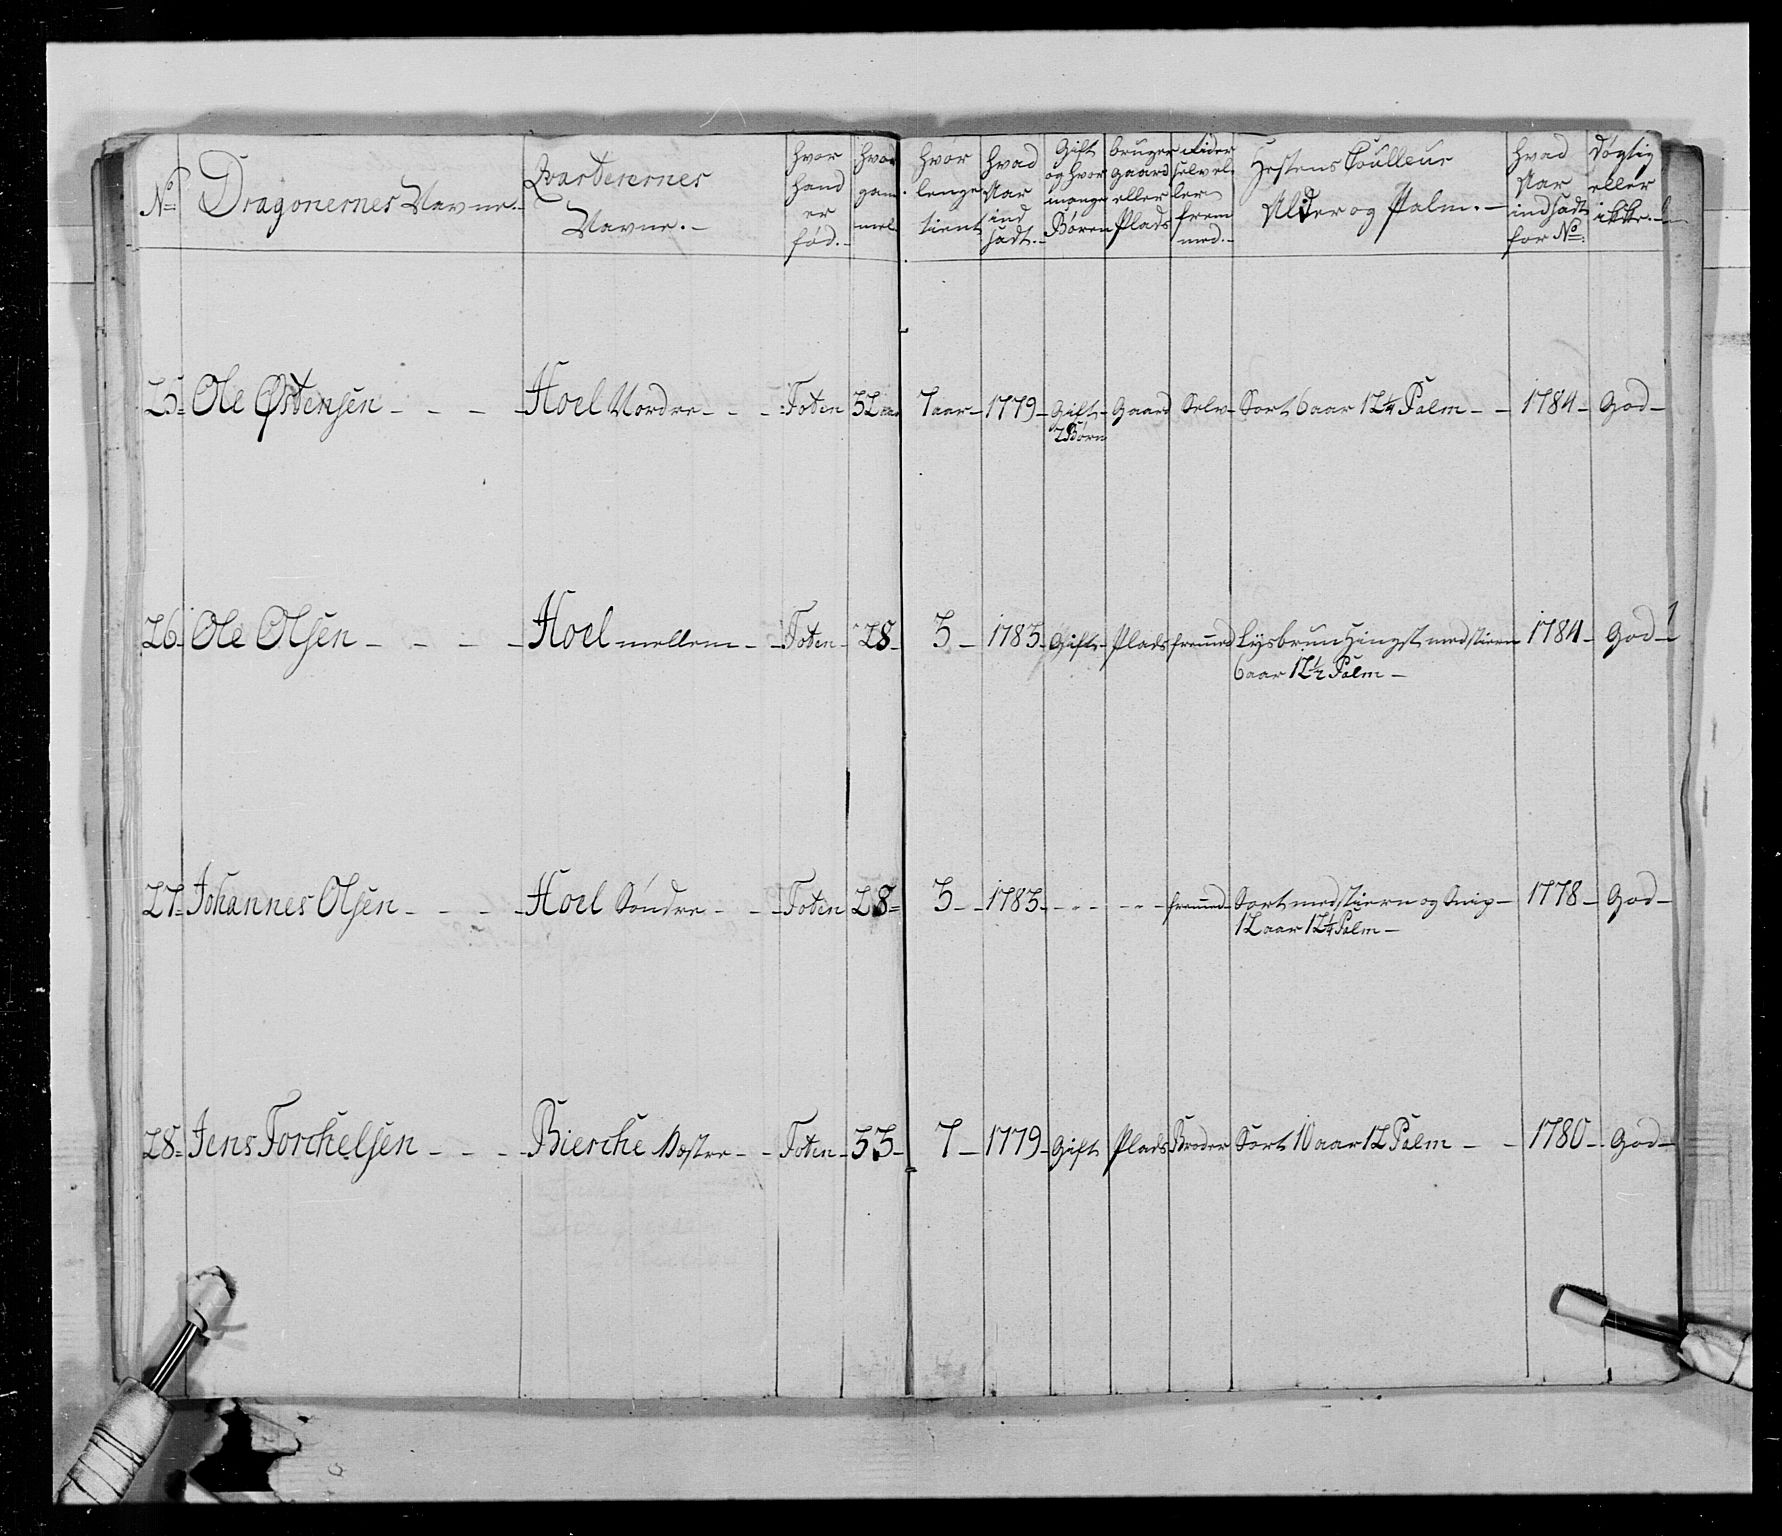 No
Dragonernes Navne.
Qvarterernes
Navne.
hvor
hand
er
fød.
hvor
gam
mel
hvor
lenge
tient
hvad
Aar
ind
sadt.
Gift
og hvor
mange
Børen
bruger
gaard
eller
Plads
Rider
selv el
ler
frem
med.
Hestens Coulleur
Alder og Palm.
hvad
Aar
indsadt
for No
døgtig
eller
ikke.
25 Ole Østensen - - - Hoel Nordre - - - Toten 32 aar 7 aar - 1779 - Gift - Gaard Selv - Sort 6 aar 12¼ Palm - - 1784 - God -
2 Børn
26 Ole Olsen - - - - Hoel mellem - - Toten - 28 - 3 - 1783 - Gift - Plads fremmed Lysbrun Hingst med stiern 1784 - God -
6 aar 12½ Palm -
27 Johannes Olsen - - - - Hoel Søndre - - - Toten 28 - 3 - - 1783 - - - - - - fremmed - Sort med stiern og Snip - 1778 - God -
12 aar 12¼ Palm -
28 Jens Torchelsen - - - - Bierche Vestre - - Toten - 33 - 7 - 1779 - Gift Plads Broder Sort 10 aar 12 Palm - - 1780 - God -